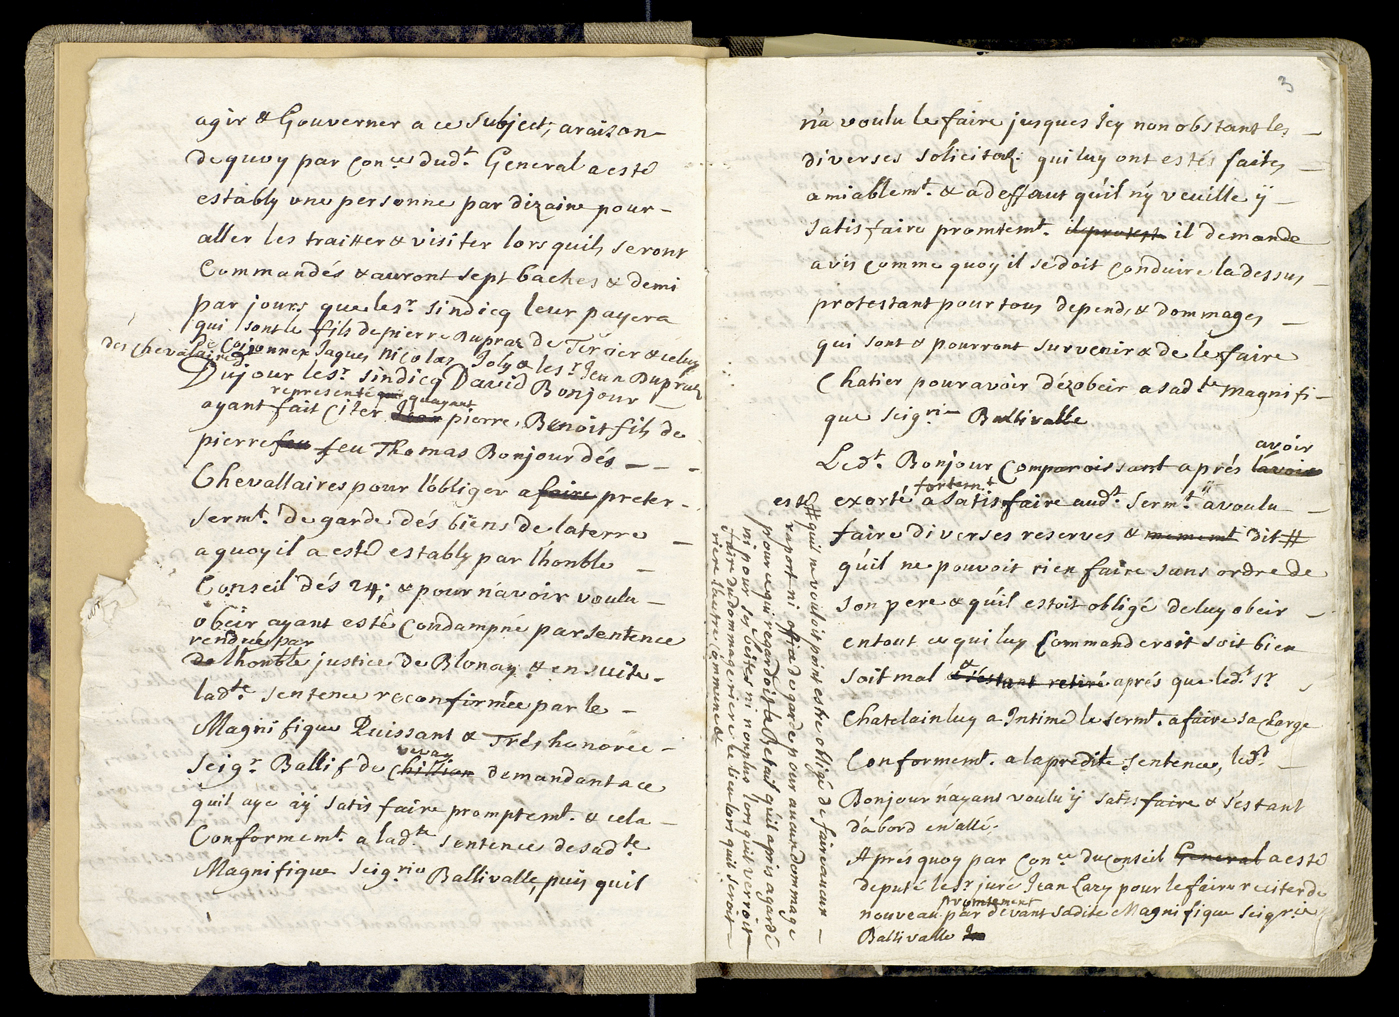 agir & Gouverner a ce Subject, a raison
de quoy par Con.ce dud.t General a esté
estably une personne par dizaine pour
aller les traitter & visiter lors quils seront
Commandés & auront sept baches & demi
par jours que le s.r sindicq leur payera
qui sont le fils de pierre Dupraz de Tercier & celuy
de Cojonnex Jaques Nicolas Joly & le s.r Jean Dupraz
dés Chevalaires
Dujour le s.r sindicq David Bonjour
representé quayant
ayant fait Citer pierre Benoit fils de
pierre feu feu Thomas Bonjour dés
Chevallaires pour l'obliger a faire preter
serm.t de garde dés biens de la terre
a quoy il a esté estably par l'honble
Conseil dés 24; & pour n'avoir voulu
obëir ayant esté Condampné par sentence
rendue par
de lhonble justice de Blonay & ensuite
lad.te sentence reconfirmée par le
Magnifique Puissant & Trés honorée
vevay
Seig.r Ballif de Chillion demandant a ce
quil aye a'y satisfaire promptem.t & cela
Conformem.t a lad.te sentence de sad.te
Magnifique Seig.rie Ballivalle, puis quil
3
n'a voulu le faire jusques Icy non obstant les
diverses solicitaõ. qui luy ont estés faites
amiablem.t & a deffaut quil n'y veuille ÿ
satisfaire promtem.t il proteste il demande
avis comme quoy il se doit conduire la dessus
protestant pour tous depends & dommages
qui sont & pourront survenir & de le faire
Chatier pour avoir dézobeir a sad.te magnifi-
que seig.rie Ballivalle
avoir
Led.t Bonjour Comparoissant aprés l'avoir
fortem.t
esté exorté a Satisfaire aud.t serm.t ÿ a voulu
faire diverses reserves & dit #
qu'il ne pouvoit rien faire sans ordre de
son pere & quil estoit obligé de luy obeir
en tout ce qui luy Commanderoit soit bien
soit mal & s'éstant retiré aprés que led.t s.r
Chatelain luy a Intimé le serm.t a faire sa charge
Conformem.t a la predite sentence, led.t
Bonjour n'ayans voulu ÿ satisfaire & s'estant
d'abord en'allé.
Aprés quoy par Con.ce du Conseil General a esté
deputé le s.r juré Jean Lazy pour le faire reciter de
promtement
nouveau par devant sadite Magnifique Seig.rie
Ballivalle
# qu'il ne vouloit point estre obligé de faire aucun
raport ni office de garde pour aucun dommage
pour ce qui regardoit le Betail qu'il apris a gardé
ni pour ses bestes ni non plus lors quil verroit
faire du dommage riere le lieu lors quil seroit
riere l'autre Commune &